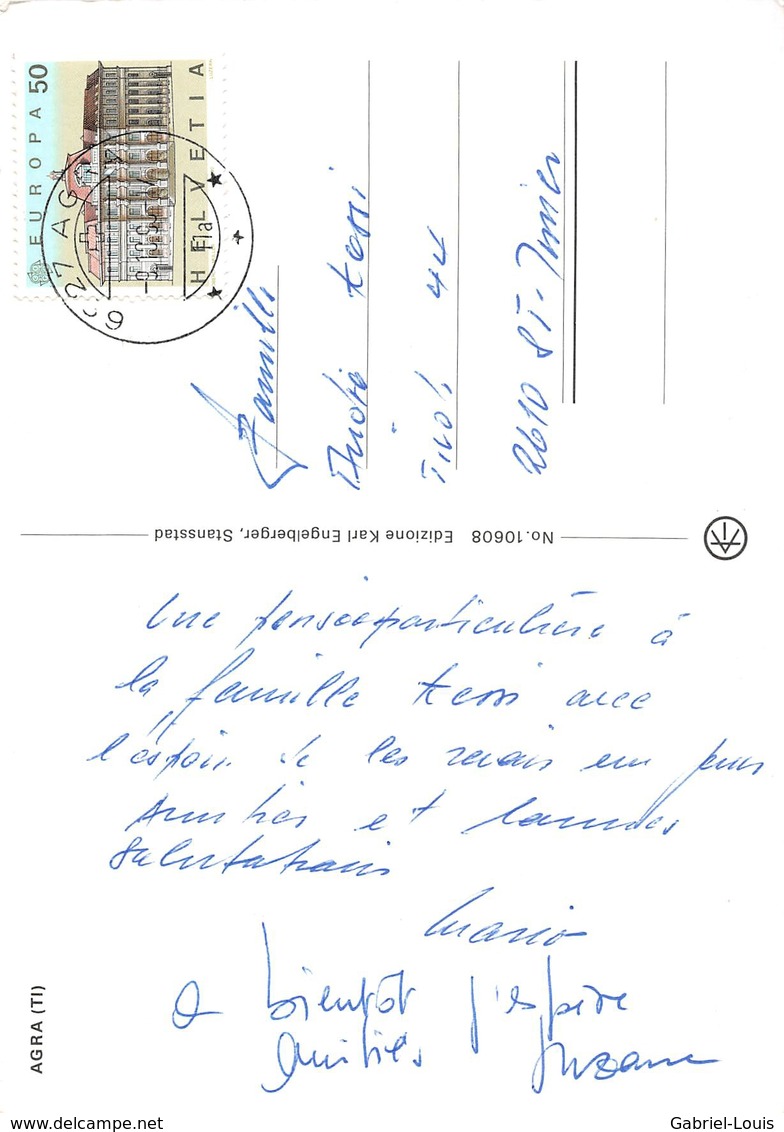 EUROPA 50
HELVETIA
6927 AGRA
Famille
Kessi
2610 ST-Imier
No. 10608 Edizione Karl Engelberger, Stansstad
Une pensée particulière à
la famille Kessi avec
l'espoir de les revoir un jour
Amitiés et
salutations
Mario
a bientôt j'espère
Amitiés Suzanne
AGRA (TI)
delcampe.net
Gabriel-Louis